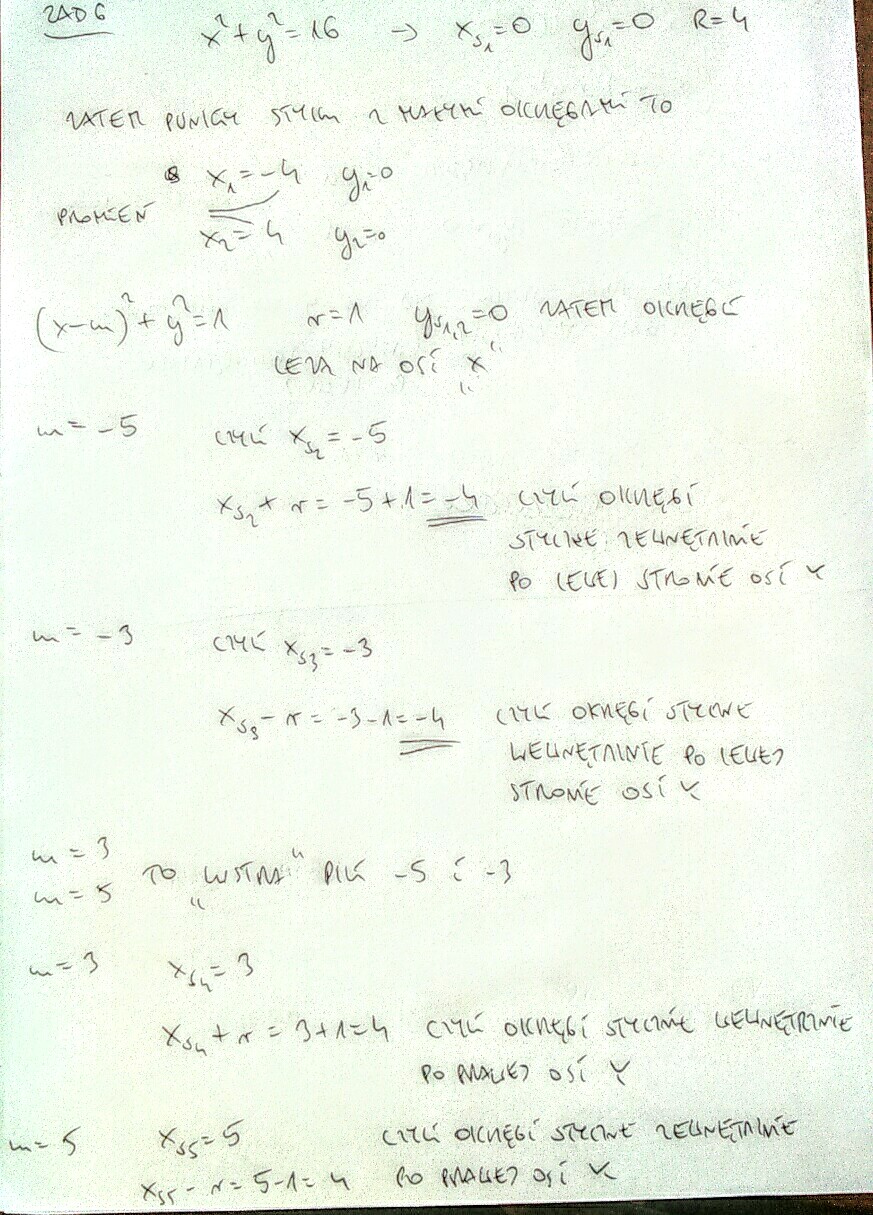 ZAD 6
x²+y²=16 → x_S₁=0 y_S₁=0 R=4
ZATEM PUNKTY STYKU Z MAŁYMI OKRĘGAMI TO
x₁=-4 y₁=0
PROMIEŃ
x₂=4 y₂=0
(x-m)²+y²=1 r=1 y_S₁,₂=0 ZATEM OKRĘGI
LEŻĄ NA OSI „x”
m=-5 CZYLI x_S₂=-5
x_S₂+r=-5+1=-4 CZYLI OKRĘGI
STYCZNE ZEWNĘTRZNIE
PO LEWEJ STRONIE OSI Y
m=-3 CZYLI x_S₃=-3
x_S₃-r=-3-1=-4 CZYLI OKRĘGI STYCZNE
WEWNĘTRZNIE PO LEWEJ
STRONIE OSI Y
m=3
m=5 TO „LUSTRA” -5 i -3
m=3 x_S₄=3
x_S₄+r=3+1=4 CZYLI OKRĘGI STYCZNIE WEWNĘTRZNIE
PO PRAWEJ OSI Y
m=5 x_S₅=5 CZYLI OKRĘGI STYCZNE ZEWNĘTRZNIE
x_S₅-r=5-1=4 PO PRAWEJ OSI Y